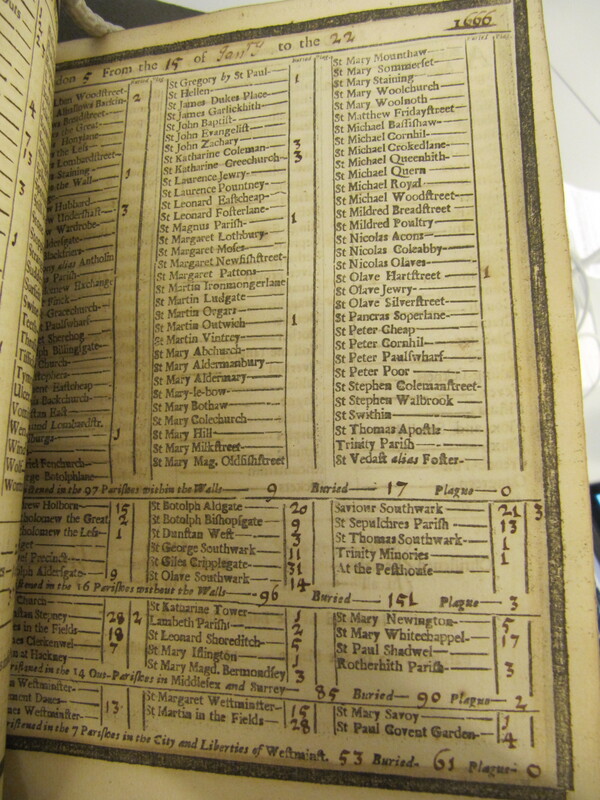 1666
don 5 From the 15 of Janry to the 22
Buried Plag.
Buried Plag.
Buried Plag.
Woodstreet-
2
Breadstreet-
the Great
Honylane
the Less
Lombardstreet-
Staining
the Wall
1
Hubbard
Undershaft
3
Wardrobe
ldersgate
alias Antholin
Parish
Exchange
Finck
Gracechurch-
Paulswharf
Sherehog
Billingsgate
Church
Eastcheap
Backchurch
East
Lombardstr.
1
Fenchurch
Botolphlane
St Gregory by St Paul- 1
St Hellen
St James Dukes Place
St James Garlickhith
St John Baptist
St John Evangelist
St John Zachary
St Katharine Coleman- 3
St Katharine Creechurch- 3
St Laurence Jewry
St Laurence Pountney
St Leonard Eastcheap
St Leonard Fosterlane
St Magnus Parish 1
St Margaret Lothbury
St Margaret Moses
St Margaret Newfishstreet-
St Margaret Pattons
St Martin Ironmongerlane
St Martin Ludgate
St Martin Orgars
St Martin Outwich 1
St Martin Vintrey
St Mary Abchurch
St Mary Aldermanbury
St Mary Aldermary
St Mary-le-bow
St Mary Bothaw
St Mary Colechurch
St Mary Hill
St Mary Milkstreet
St Mary Mag. Oldfishstreet
St Mary Mounthaw
St Mary Sommerset
St Mary Staining
St Mary Woolchurch
St Mary Woolnoth
St Matthew Fridaystreet
St Michael Bassishaw
St Michael Cornhil
St Michael Crokedlane
St Michael Queenhith
St Michael Quern
St Michael Royal
St Michael Woodstreet
St Mildred Breadstreet
St Mildred Poultry
St Nicolas Acons
St Nicolas Coleabby
St Nicolas Olaves
St Olave Hartstreet 1
St Olave Jewry
St Olave Silverstreet
St Pancras Soperlane
St Peter Cheap
St Peter Cornhil
St Peter Paulswharf
St Peter Poor
St Stephen Colemanstreet-
St Stephen Walbrook
St Swithin
St Thomas Apostle
Trinity Parish
St Vedast alias Foster-
istened in the 97 Parishes within the Walls 9 Buried 17 Plague 0
Holborn 15
tholomew the Great 2
tholomew the Less 1
Precinct
Aldersgate 9
St Botolph Aldgate 20
St Botolph Bishopsgate 9
St Dunstan West 3
St George Southwark 11
St Giles Cripplegate 31
St Olave Southwark 14
Saviour Southwark 21 3
St Sepulchres Parish 13
St Thomas Southwark 1
Trinity Minories 1
At the Pesthouse
stened in the 16 Parishes without the Walls 96 Buried 151 Plague 3
Church
Stepney 28 2
in the Fields 18
Clerkenwel 7
at Hackney
St Katharine Tower 1
Lambeth Parish 2
St Leonard Shoreditch 5
St Mary Islington 1
St Mary Magd. Bermondsey 3
St Mary Newington 5
St Mary Whitechappel 17
St Paul Shadwel
Rotherhith Parish 3
ristened in the 14 Out-Parishes in Middlesex and Surrey 85 Buried 90 Plague 2
Westminster
Danes 13
Westminster
St Margaret Westminster 15
St Martin in the Fields 28
St Mary Savoy 1
St Paul Covent Garden 4
ristened in the 7 Parishes in the City and Liberties of Westminst. 53 Buried 61 Plague 0